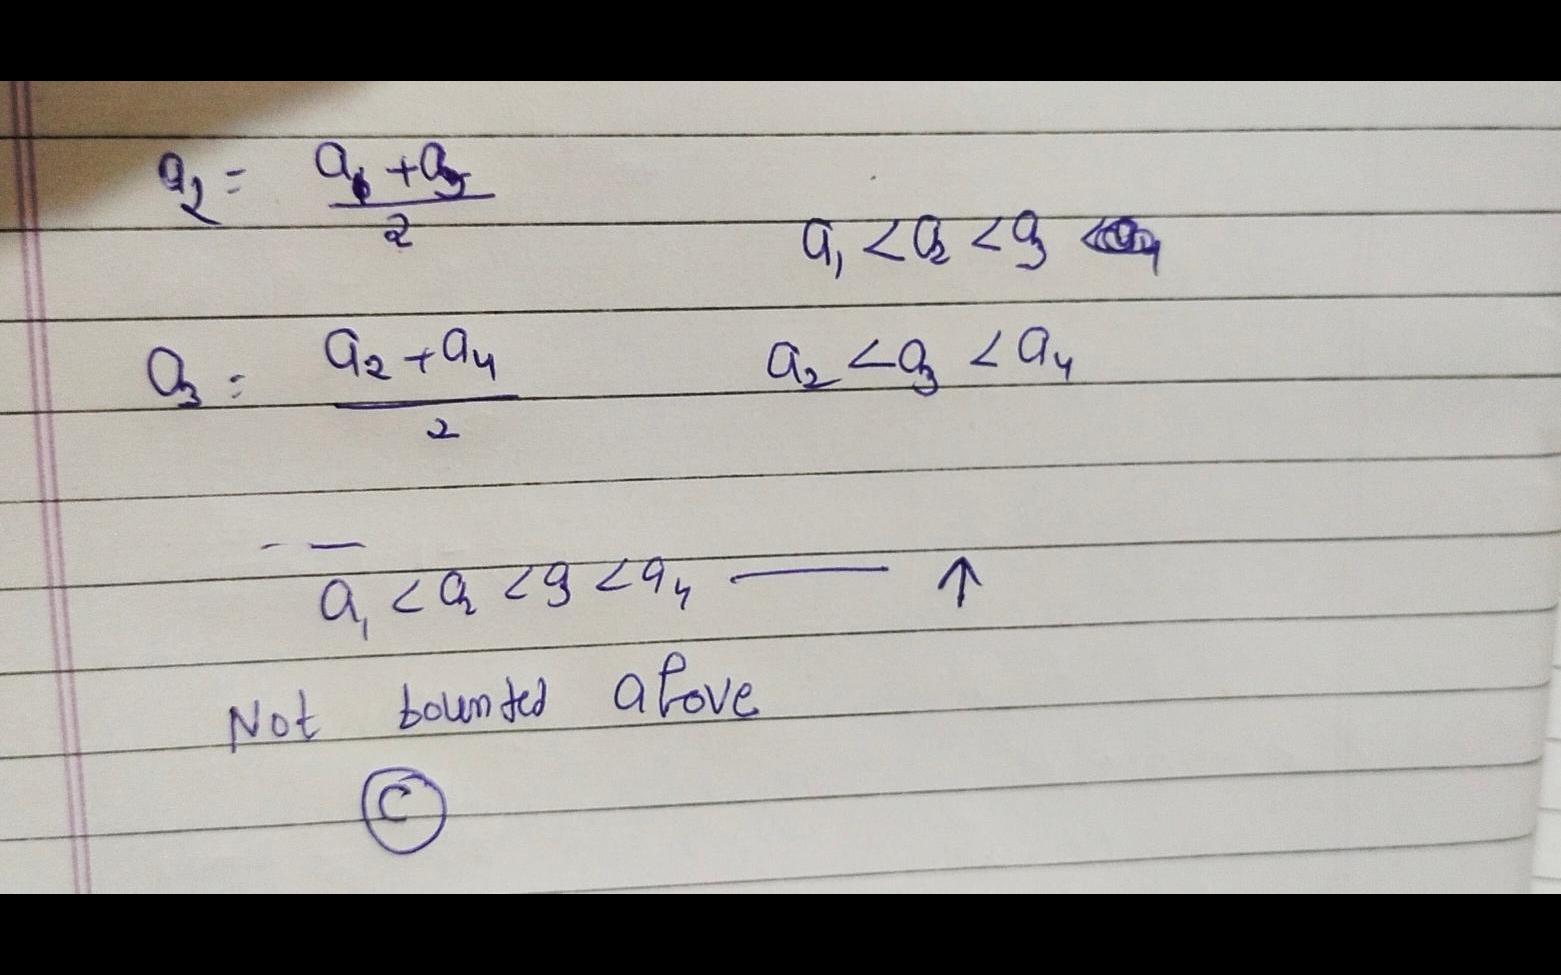 a₂ = (a₁ + a₃)/2
a₁ < a₂ < a₃
a₃ = (a₂ + a₄)/2
a₂ < a₃ < a₄
a₁ < a₂ < a₃ < a₄ —— ↑
Not bounted above
C